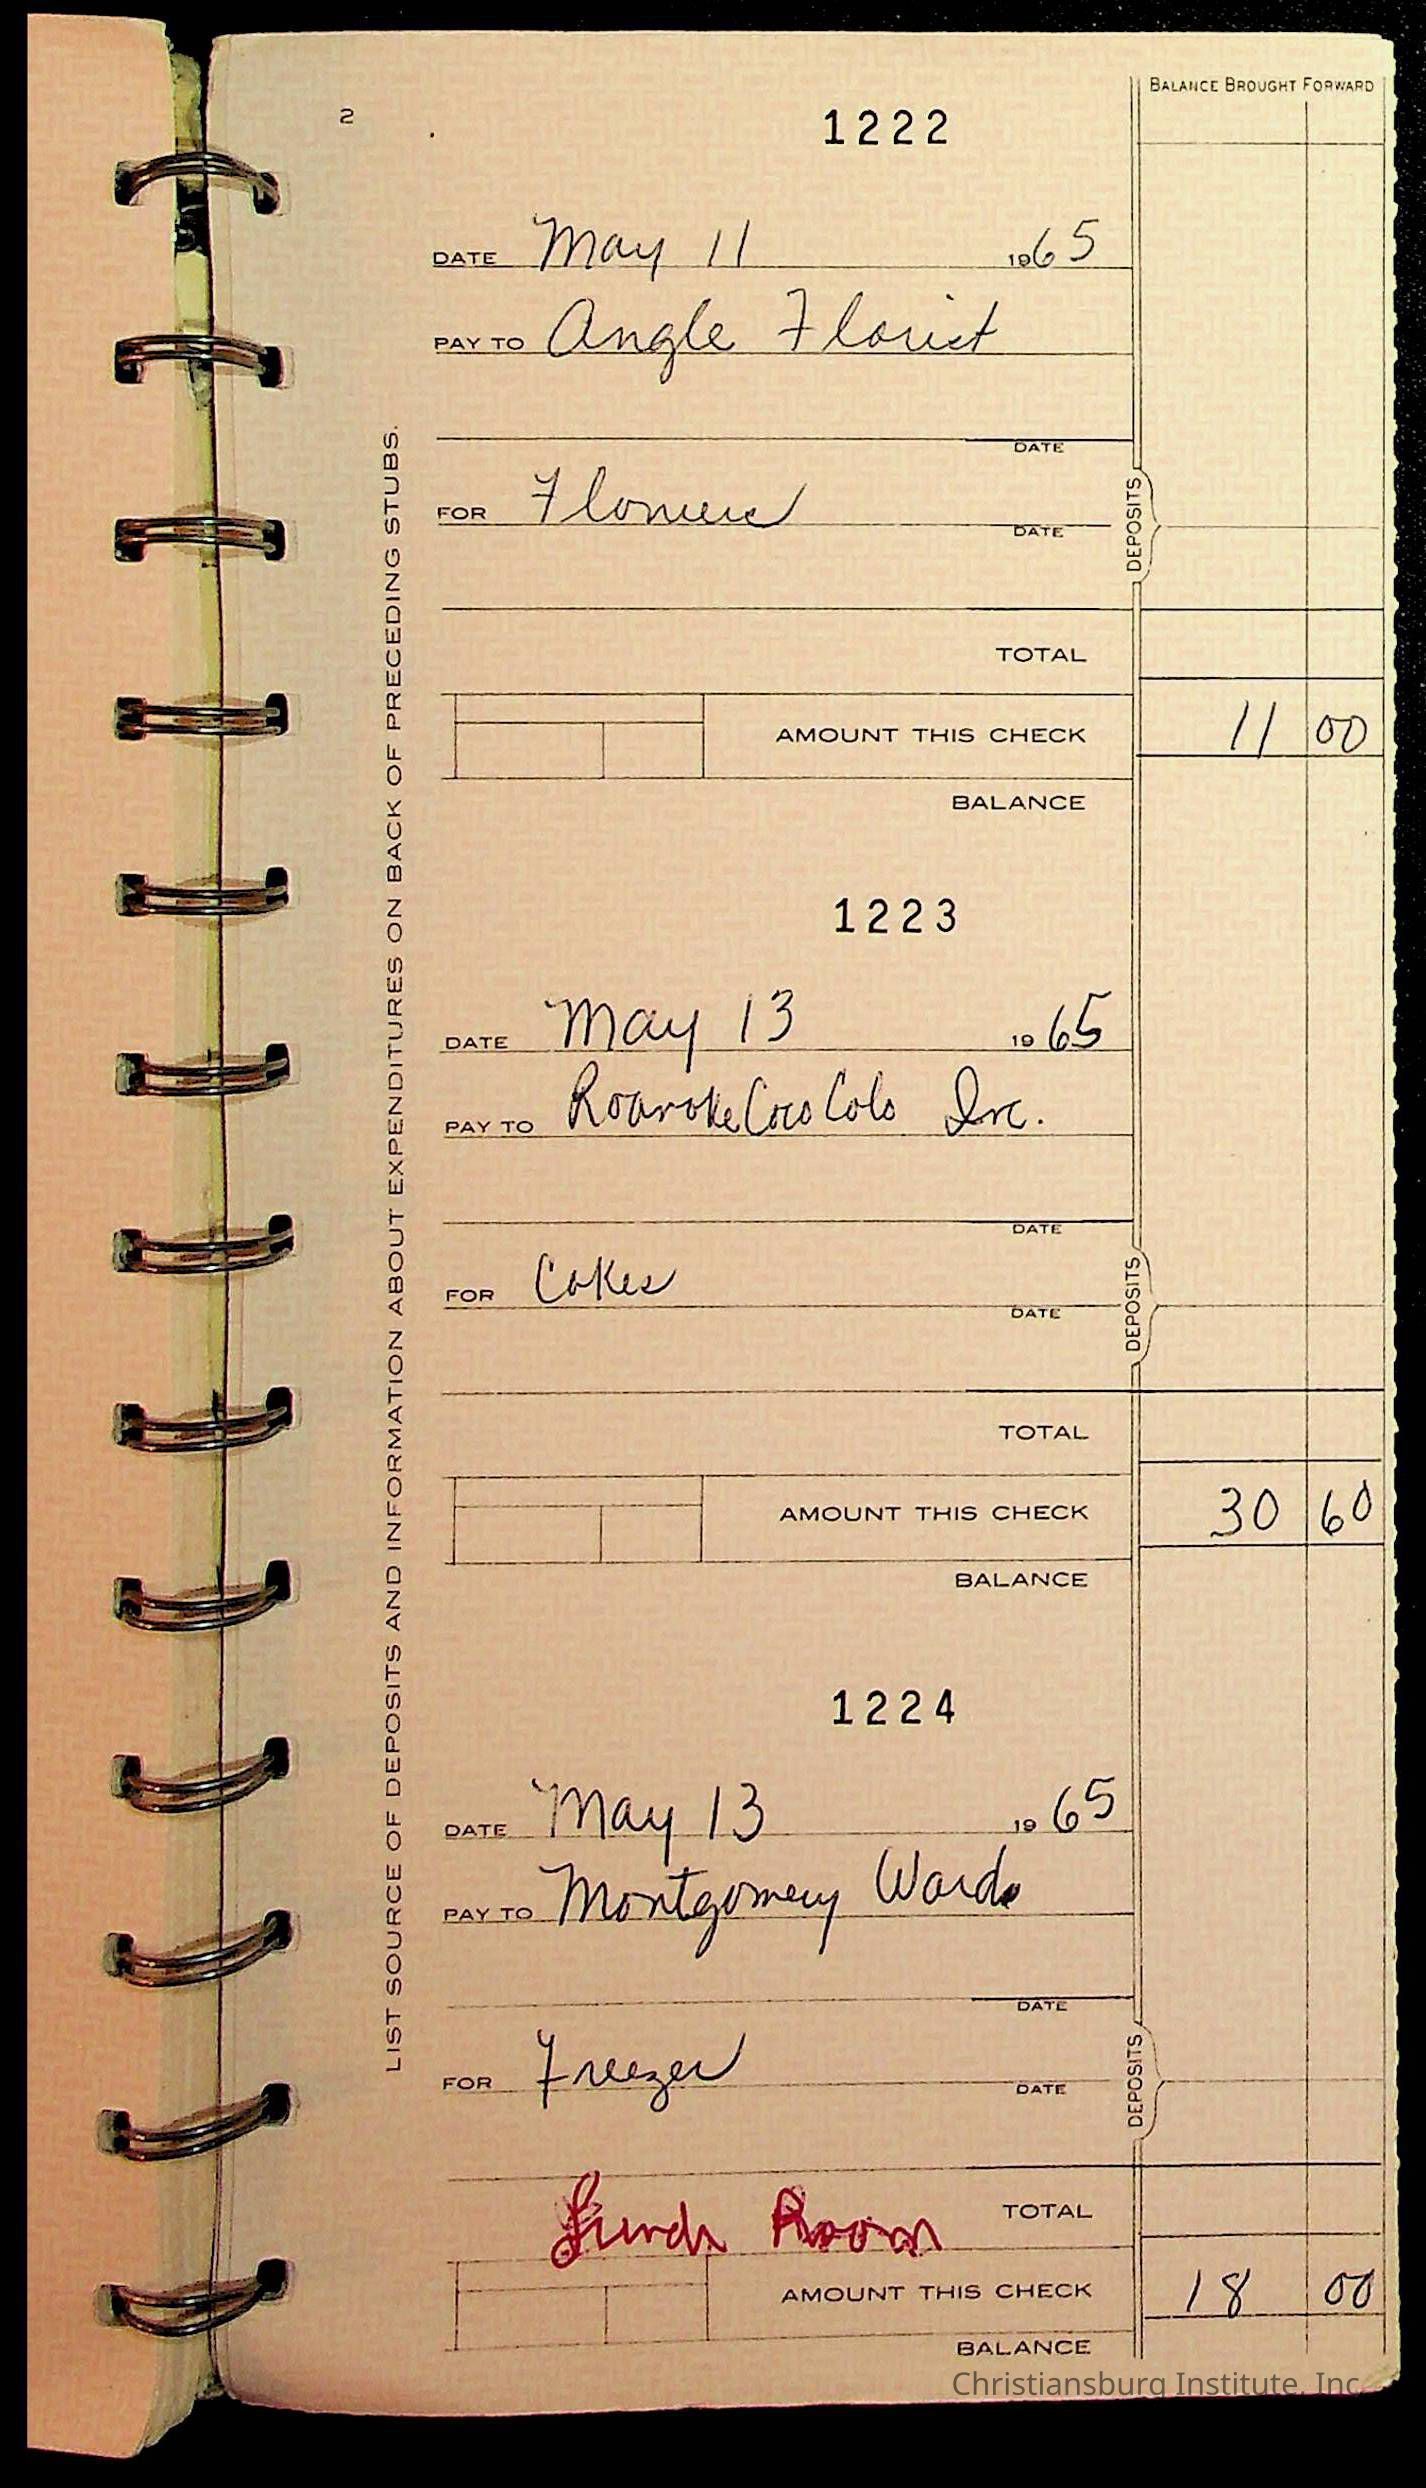 BALANCE BROUGHT FORWARD
2
1222
DATE May 11 1965
PAY TO Angle Florist
DATE
FOR Flowers
DATE
DEPOSITS
TOTAL
AMOUNT THIS CHECK 11 00
BALANCE
1223
DATE May 13 1965
PAY TO Roanoke Coca Cola Inc.
DATE
FOR Cokes
DATE
DEPOSITS
TOTAL
AMOUNT THIS CHECK 30 60
BALANCE
1224
DATE May 13 1965
PAY TO Montgomery Wards
DATE
FOR Freezer
DATE
DEPOSITS
Lunch Room TOTAL
AMOUNT THIS CHECK 18 00
BALANCE
LIST SOURCE OF DEPOSITS AND INFORMATION ABOUT EXPENDITURES ON BACK OF PRECEDING STUBS.
Christiansburg Institute, Inc.